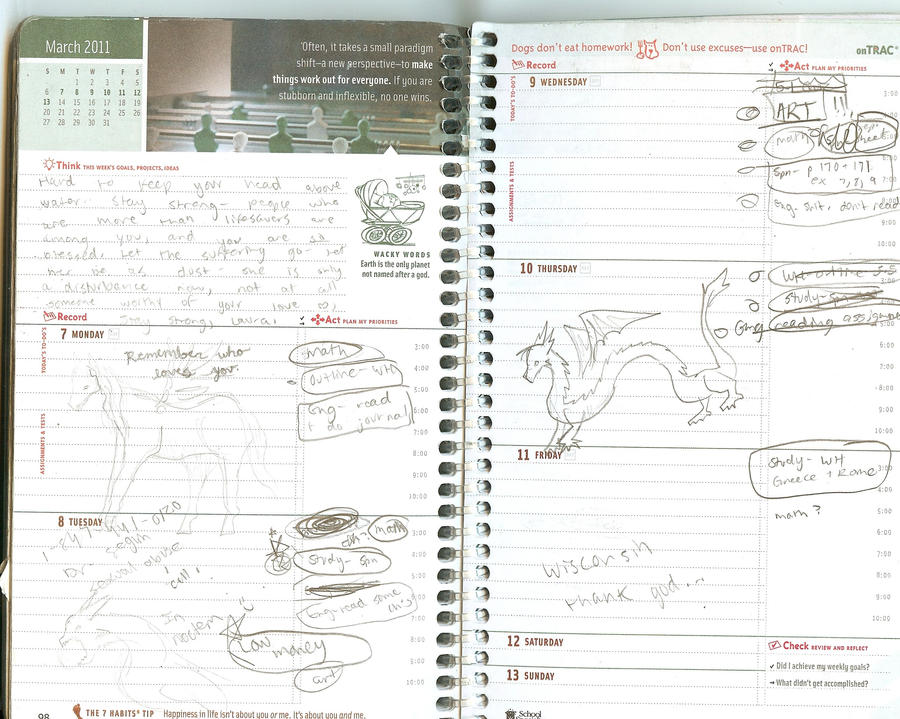 March 2011
S M T W T F S
1 2 3 4 5
6 7 8 9 10 11 12
13 14 15 16 17 18 19
20 21 22 23 24 25 26
27 28 29 30 31
'Often, it takes a small paradigm
shift–a new perspective–to make
things work out for everyone. If you are
stubborn and inflexible, no one wins.
Think THIS WEEK'S GOALS, PROJECTS, IDEAS
Hard to keep your head above
water. Stay strong- people who
are more than lifesavers are
among you, and you are so
blessed. Let the suffering go- let
her be as dust- she is only
a disturbance now, not at all
someone worthy of your love
Stay strong, Laura.
WACKY WORDS
Earth is the only planet
not named after a god.
Record
Act PLAN MY PRIORITIES
7 MONDAY
TODAY'S TO-DO'S
ASSIGNMENTS & TESTS
Remember who
loves you.
math
Outline- WH
Eng- read
+ do journal
3:00
4:00
5:00
6:00
7:00
8:00
9:00
10:00
8 TUESDAY
1-847-441-0120
Dr. Segun
sexual abuse
call!
In
noctem
math
Study- Spn
Eng-read some
this
Low
money
art
3:00
4:00
5:00
8:00
9:00
10:00
98
THE 7 HABITS TIP Happiness in life isn't about you or me. It's about you and me.
Dogs don't eat homework! Don't use excuses—use onTRAC!
onTRAC
Record
Act PLAN MY PRIORITIES
9 WEDNESDAY
TODAY'S TO-DO'S
ASSIGNMENTS & TESTS
ART !!!
math
Spn- p 170+171
ex 7, 8, 9
Eng- shit, don't read
3:00
7:00
9:00
10:00
10 THURSDAY
WH outline 5.5
Study- Spn
Eng reading assignme
5:00
6:00
7:00
8:00
9:00
10:00
11 FRIDAY
Study- WH
Greece + Rome
math?
3:00
4:00
5:00
6:00
7:00
8:00
9:00
10:00
Wisconsin
thank god...
12 SATURDAY
13 SUNDAY
Check REVIEW AND REFLECT
Did I achieve my weekly goals?
What didn't get accomplished?
School